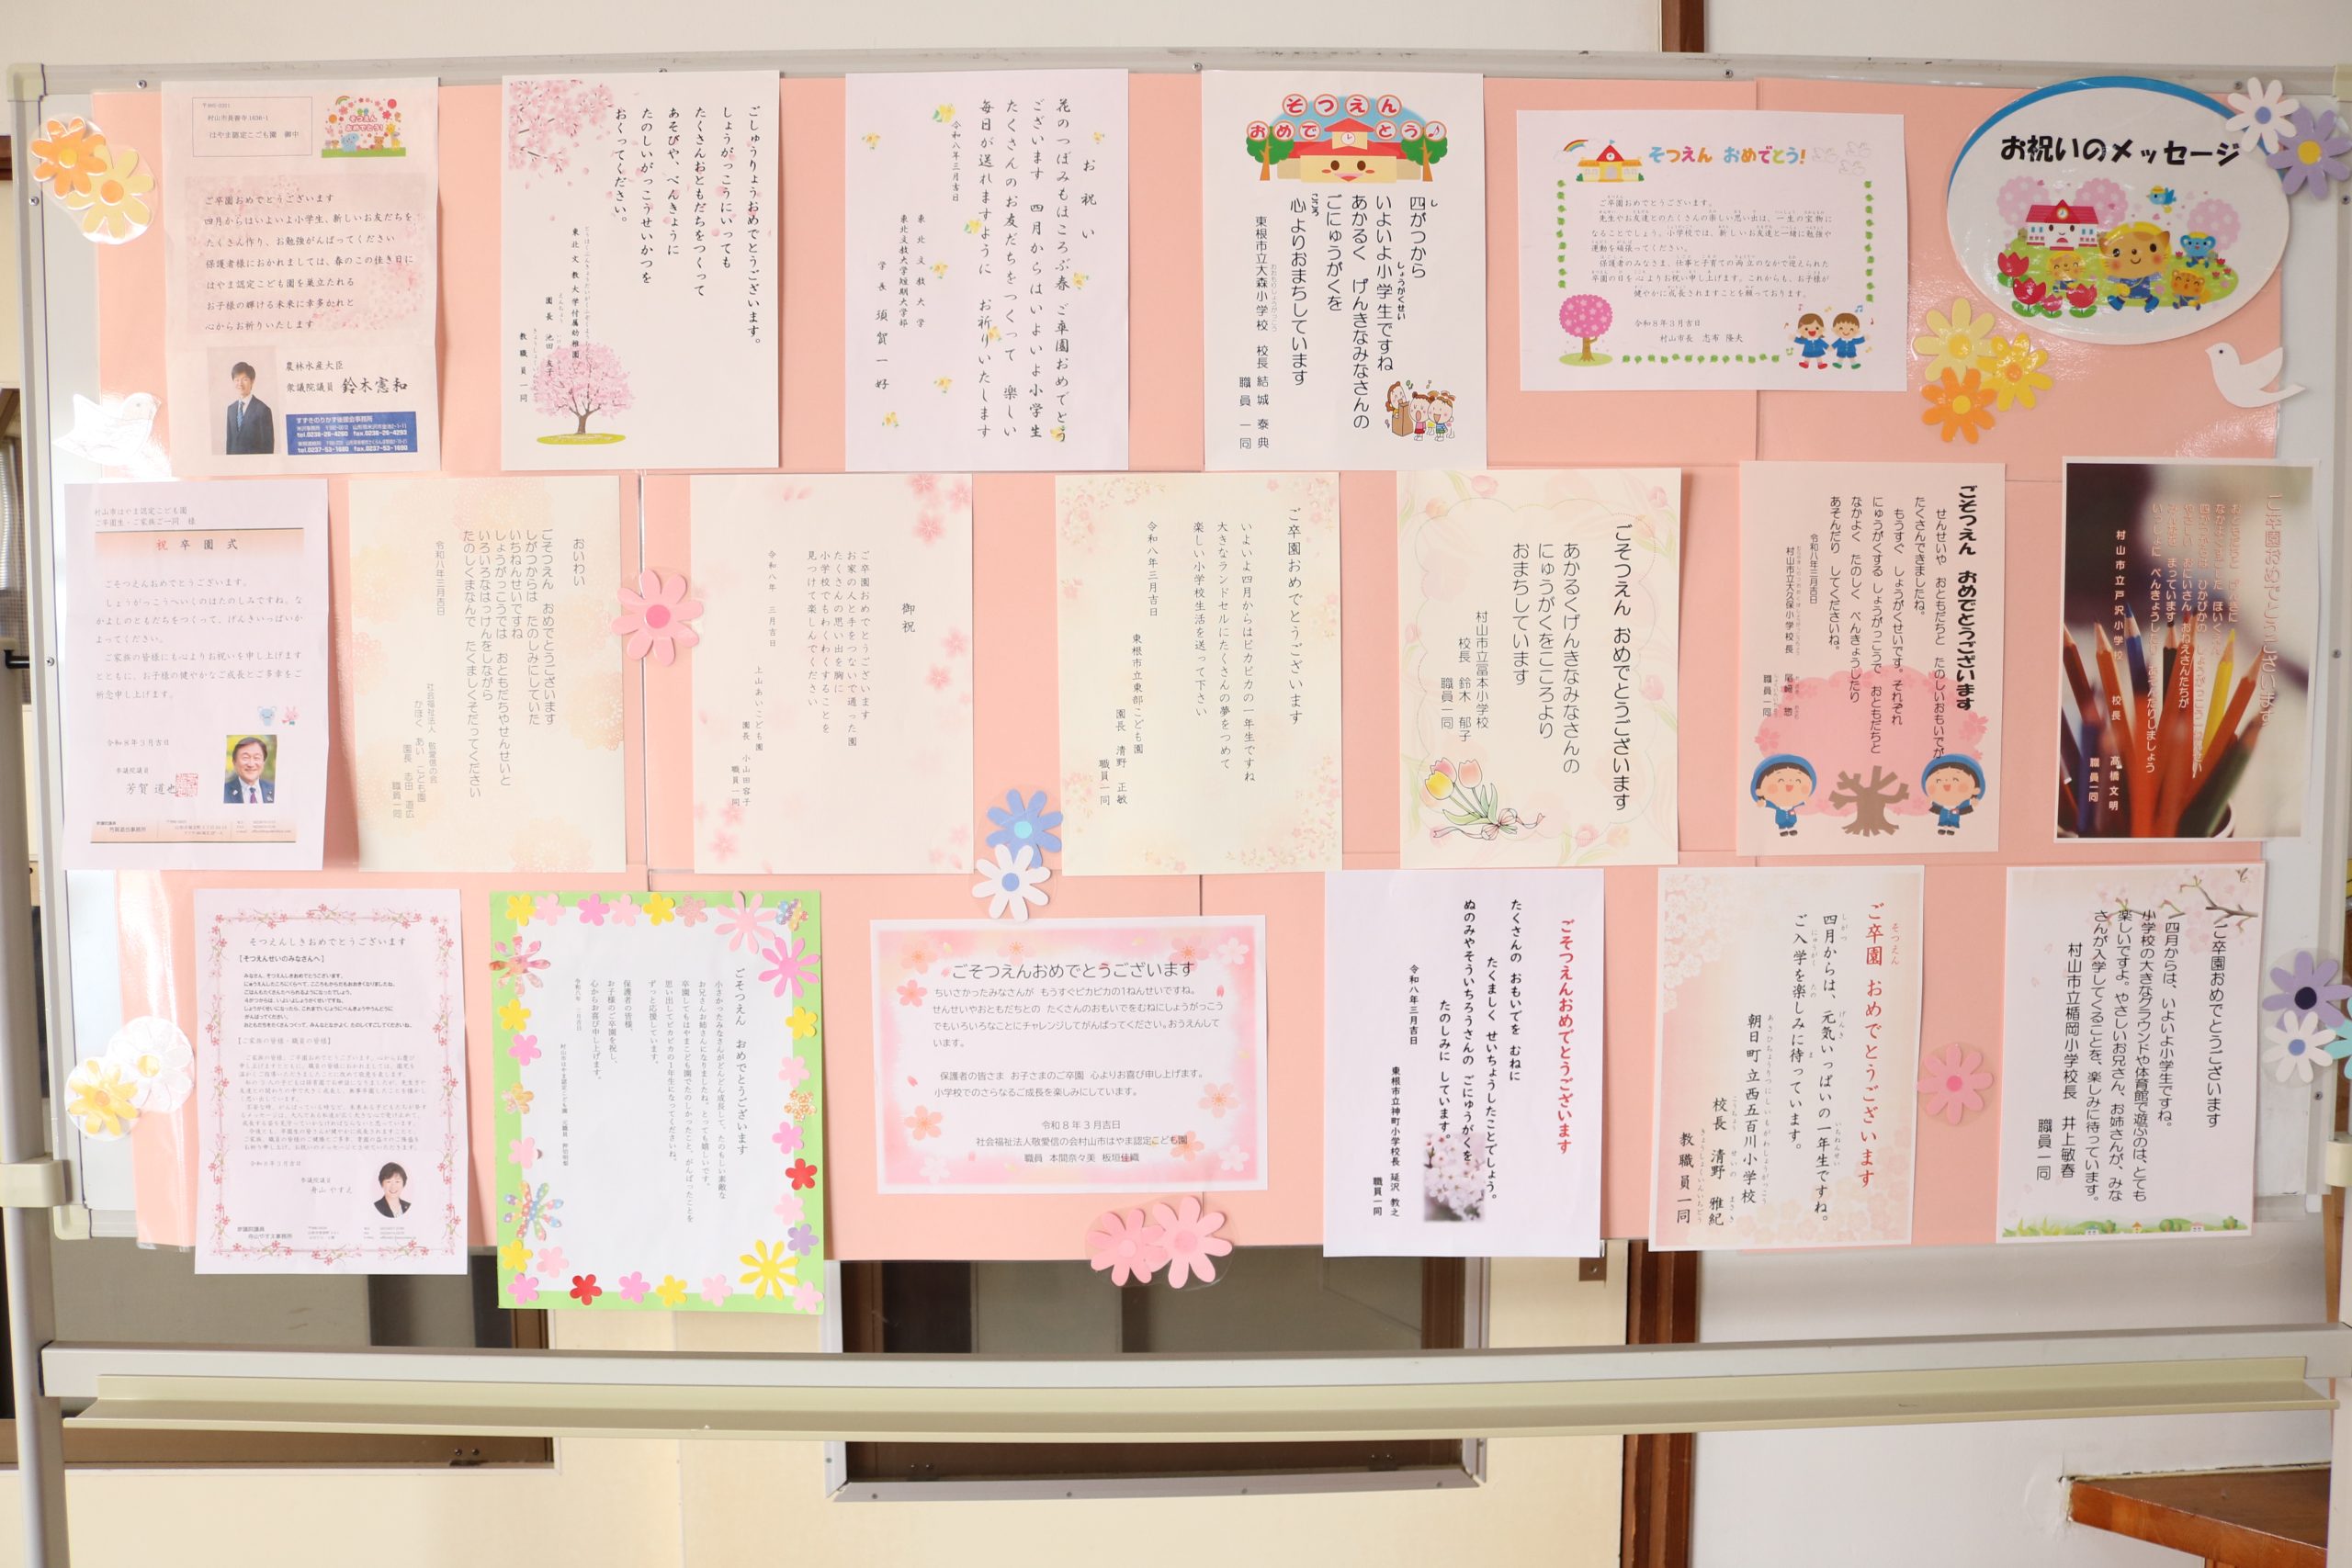 お祝いのメッセージ
そつえん おめでとう!
ご卒園おめでとうございます。
先生やお友達とのたくさんの楽しい思い出は、一生の宝物に
なることでしょう。小学校では、新しいお友達と一緒に勉強や
運動を頑張ってください。
保護者のみなさま、仕事と子育ての両立のなかで迎えられた
卒園の日を心よりお祝い申し上げます。これからも、お子様が
健やかに成長されますことを願っております。
令和8年3月吉日
村山市長 志布 隆夫
そつえん
おめでとう♪
四がつから
いよいよ小学生ですね
あかるく げんきなみなさんの
ごにゅうがくを
心よりおまちしています
東根市立大森小学校 校長 結城 泰典
職員一同
お祝い
花のつぼみもほころぶ春 ご卒園おめでとう
ございます 四月からはいよいよ小学生
たくさんのお友だちをつくって 楽しい
毎日が送れますように お祈りいたします
令和八年三月吉日
東北文教大学
東北文教大学短期大学部
学長 須賀一好
ごしゅうりょうおめでとうございます。
しょうがっこうにいっても
たくさんおともだちをつくって
あそびや、べんきょうに
たのしいがっこうせいかつを
おくってください。
東北文教大学付属幼稚園
園長 池田 友子
教職員一同
村山市長善寺1636-1
はやま認定こども園 御中
そつえん
おめでとう!
ご卒園おめでとうございます
四月からはいよいよ小学生、新しいお友だちを
たくさん作り、お勉強がんばってください
保護者様におかれましては、春のこの佳き日に
はやま認定こども園を巣立たれる
お子様の輝ける未来に幸多かれと
心からお祈りいたします
農林水産大臣
衆議院議員 鈴木憲和
すずきのりかず後援会事務所
tel.0238-26-4260 fax.0238-26-4293
tel.0237-53-1680 fax.0237-53-1690
ご卒園おめでとうございます
村山市立戸沢小学校 校長 高橋文明
職員一同
ごそつえん おめでとうございます
せんせいや おともだちと たのしいおもいでが
たくさんできましたね。
もうすぐ しょうがくせいです。それぞれ
にゅうがくする しょうがっこうで おともだちと
なかよく たのしく べんきょうしたり
あそんだり してくださいね。
令和八年三月吉日
村山市立大久保小学校長 尾﨑 惣
職員一同
ごそつえん おめでとうございます
あかるくげんきなみなさんの
にゅうがくをこころより
おまちしています
村山市立冨本小学校
校長 鈴木 郁子
職員一同
ご卒園おめでとうございます
いよいよ四月からはピカピカの一年生ですね
大きなランドセルにたくさんの夢をつめて
楽しい小学校生活を送って下さい
令和八年三月吉日
東根市立東部こども園
園長 清野 正敏
職員一同
御祝
ご卒園おめでとうございます
お家の人と手をつないで通った園
たくさんの思い出を胸に
小学校でもわくわくすることを
見つけて楽しんでください
令和八年 三月吉日
上山あいこども園
園長 小山田容子
職員一同
おいわい
ごそつえん おめでとうございます
しがつからは たのしみにしていた
いちねんせいですね
しょうがっこうでは おともだちやせんせいと
いろいろなはっけんをしながら
たのしくまなんで たくましくそだってください
令和八年三月吉日
社会福祉法人 敬愛信の会
かほく あい こども園
園長 志田 道広
職員一同
村山市はやま認定こども園
ご卒園生・ご家族ご一同 様
祝 卒 園 式
ごそつえんおめでとうございます。
しょうがっこうへいくのはたのしみですね。な
かよしのともだちをつくって、げんきいっぱいか
よってください。
ご家族の皆様にも心よりお祝いを申し上げます
とともに、お子様の健やかなご成長とご多幸をご
祈念申し上げます。
令和8年3月吉日
参議院議員
芳賀 道也
ご卒園おめでとうございます
四月からは、いよいよ小学生ですね。
小学校の大きなグラウンドや体育館で遊ぶのは、とても
楽しいですよ。やさしいお兄さん、お姉さんが、みな
さんが入学してくることを、楽しみに待っています。
村山市立楯岡小学校長 井上敏春
職員一同
ご卒園 おめでとうございます
四月からは、元気いっぱいの一年生ですね。
ご入学を楽しみに待っています。
朝日町立西五百川小学校
校長 清野 雅紀
教職員一同
ごそつえんおめでとうございます
たくさんの おもいでを むねに
たくましく せいちょうしたことでしょう。
ぬのみやそういちろうさんの ごにゅうがくを
たのしみに しています。
令和八年三月吉日
東根市立神町小学校長 延沢 教之
職員一同
ごそつえんおめでとうございます
ちいさかったみなさんが もうすぐピカピカの1ねんせいですね。
せんせいやおともだちとの たくさんのおもいでをむねにしょうがっこう
でもいろいろなことにチャレンジしてがんばってください。おうえんして
います。
保護者の皆さま お子さまのご卒園 心よりお喜び申し上げます。
小学校でのさらなるご成長を楽しみにしています。
令和8年3月吉日
社会福祉法人敬愛信の会村山市はやま認定こども園
職員 本間奈々美 板垣佳織
ごそつえん おめでとうございます
小さかったみなさんがどんどん成長して、たのもしい素敵な
お兄さんお姉さんになりましたね。とっても嬉しいです。
卒園してもはやまこども園でたのしかったこと、がんばったことを
思い出してピカピカの1年生になってくださいね。
ずっと応援しています。
保護者の皆様、
お子様のご卒園を祝し、
心からお喜び申し上げます。
令和八年 三月吉日
そつえんしきおめでとうございます
【そつえんせいのみなさんへ】
【ご家族の皆様・職員の皆様】
令和8年3月吉日
参議院議員
舟山 やすえ